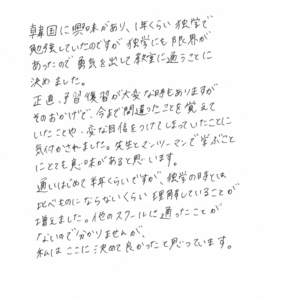 韓国に興味があり、1年くらい独学で
勉強していたのですが独学にも限界が
あったので勇気を出して教室に通うことに
決めました。
正直、予習復習が大変な時もありますが
そのおかげで、今まで間違ったことを覚えて
いたことや、変な自信をつけてしまっていたことに
気付かされました。先生とマンツーマンで学ぶこと
にとても意味があると思います。
通いはじめて半年くらいですが、独学の時とは
比べものにならないくらい理解していることが
増えました。他のスクールに通ったことが
ないので分かりませんが、
私はここに決めて良かったと思っています。